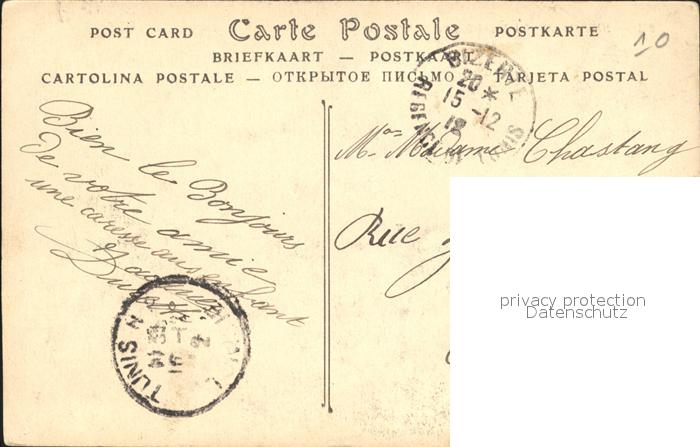 POST CARD Carte Postale POSTKARTE
BRIEFKAART — POSTKAART
CARTOLINA POSTALE — ОТКРЫТОЕ ПИСЬМО TARJETA POSTAL
10
BIZERTE
20 *
15 -12
12
Bien le Bonjours
de votre amie
une caresse aux enfant
Mme Madame Chastang
Rue
TUNIS
privacy protection
Datenschutz